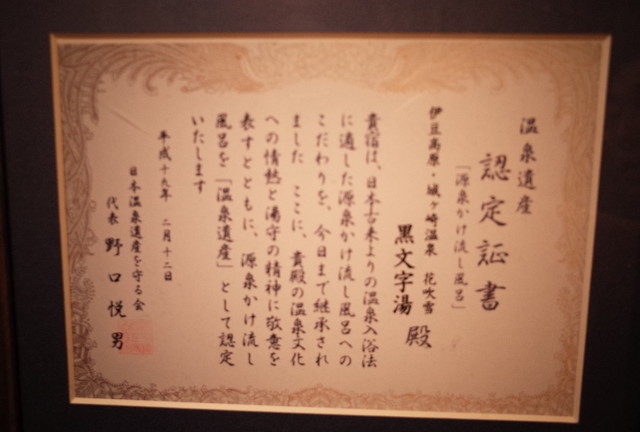 温泉遺産
認定証書
「源泉かけ流し風呂」
伊豆高原・城ヶ崎温泉 花吹雪
黒文字湯 殿
貴宿は、日本古来よりの温泉入浴法
に適した源泉かけ流し風呂への
こだわりを、今日まで継承され
ました ここに、貴殿の温泉文化
への情熱と湯守の精神に敬意を
表すとともに、源泉かけ流し
風呂を「温泉遺産」として認定
いたします
平成十九年 二月十二日
日本温泉遺産を守る会
代表 野口悦男